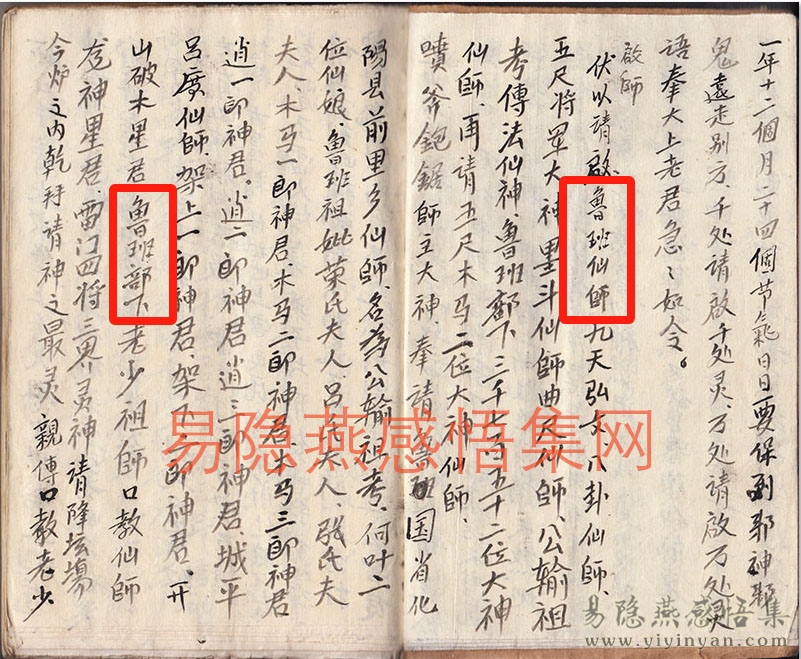 一年十二個月二十四個节氣日日要保到邪神邪
鬼遠走别方、千处請啟千处灵、万处請啟万处灵
語奉大上老君急〻如令。
啟師
伏以請啟魯班仙師九天弘文、八卦仙師、
五尺将軍大神墨斗仙師曲尺仙師、公输祖
考傳法仙神魯班部下三千七百五十二位大神
仙師、再請五尺木马二位大神仙師、
噴斧鉋鋸師主大神、奉請魯班国省化
陽县前里乡仙師、名為公输祖考、何叶二
位仙娘、魯班祖妣荣氏夫人、吕氏夫人、張氏夫
夫人、木马一郎神君、木马二郎神君、木马三郎神君
逍一郎神君、逍二郎神君、逍三郎神君、城平
呂度仙師、架上一郎神君、架下二郎神君、开
山破木星君魯班部下老少祖師口教仙師
龙神星君、雷门四将三界灵神請降坛場
今炉之内乾拜請神之最灵親傳口教老少
易隐燕感悟集网
易隐燕感悟集
www.yiyinyan.com